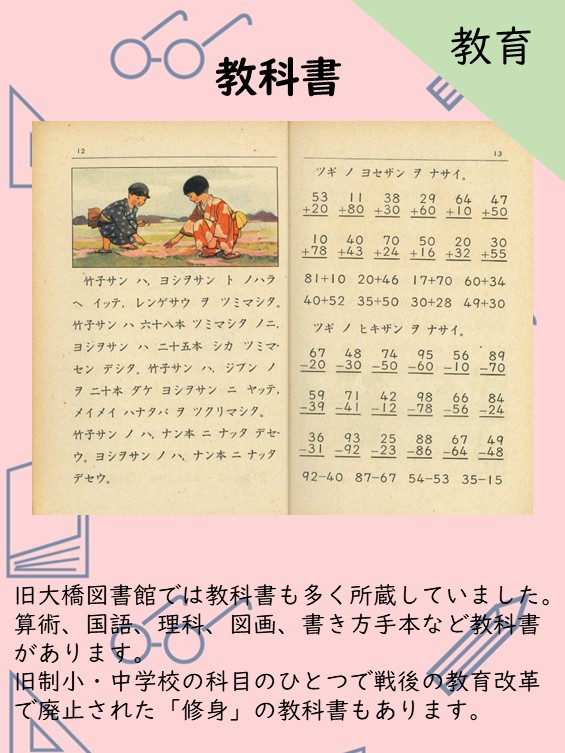 教育
教科書
12
竹子サン ハ、ヨシヲサン ト ノハラ
ヘ イッテ、レンゲサウ ヲ ツミマシタ。
竹子サン ハ 六十八本 ツミマシタ ノニ、
ヨシヲサン ハ 二十五本 シカ ツミマ
セン デシタ。竹子サン ハ、ジブン ノ
ヲ 二十本 ダケ ヨシヲサン ニ ヤッテ、
メイメイ ハナタバ ヲ ツクリマシタ。
竹子サン ノ ハ、ナン本 ニ ナッタ デセ
ウ。ヨシヲサン ノ ハ、ナン本 ニ ナッタ
デセウ。
13
ツギ ノ ヨセザン ヲ ナサイ。
53 11 38 29 64 47
+20 +80 +30 +60 +10 +50
10 40 70 50 20 30
+78 +43 +24 +16 +32 +55
81+10 20+46 17+70 60+34
40+52 35+50 30+28 49+30
ツギ ノ ヒキザン ヲ ナサイ。
67 48 74 95 56 89
−20 −30 −50 −60 −10 −70
59 71 42 98 66 84
−39 −41 −12 −78 −56 −24
36 93 25 88 67 49
−31 −92 −23 −86 −64 −48
92−40 87−67 54−53 35−15
旧大橋図書館では教科書も多く所蔵していました。
算術、国語、理科、図画、書き方手本など教科書
があります。
旧制小・中学校の科目のひとつで戦後の教育改革
で廃止された「修身」の教科書もあります。